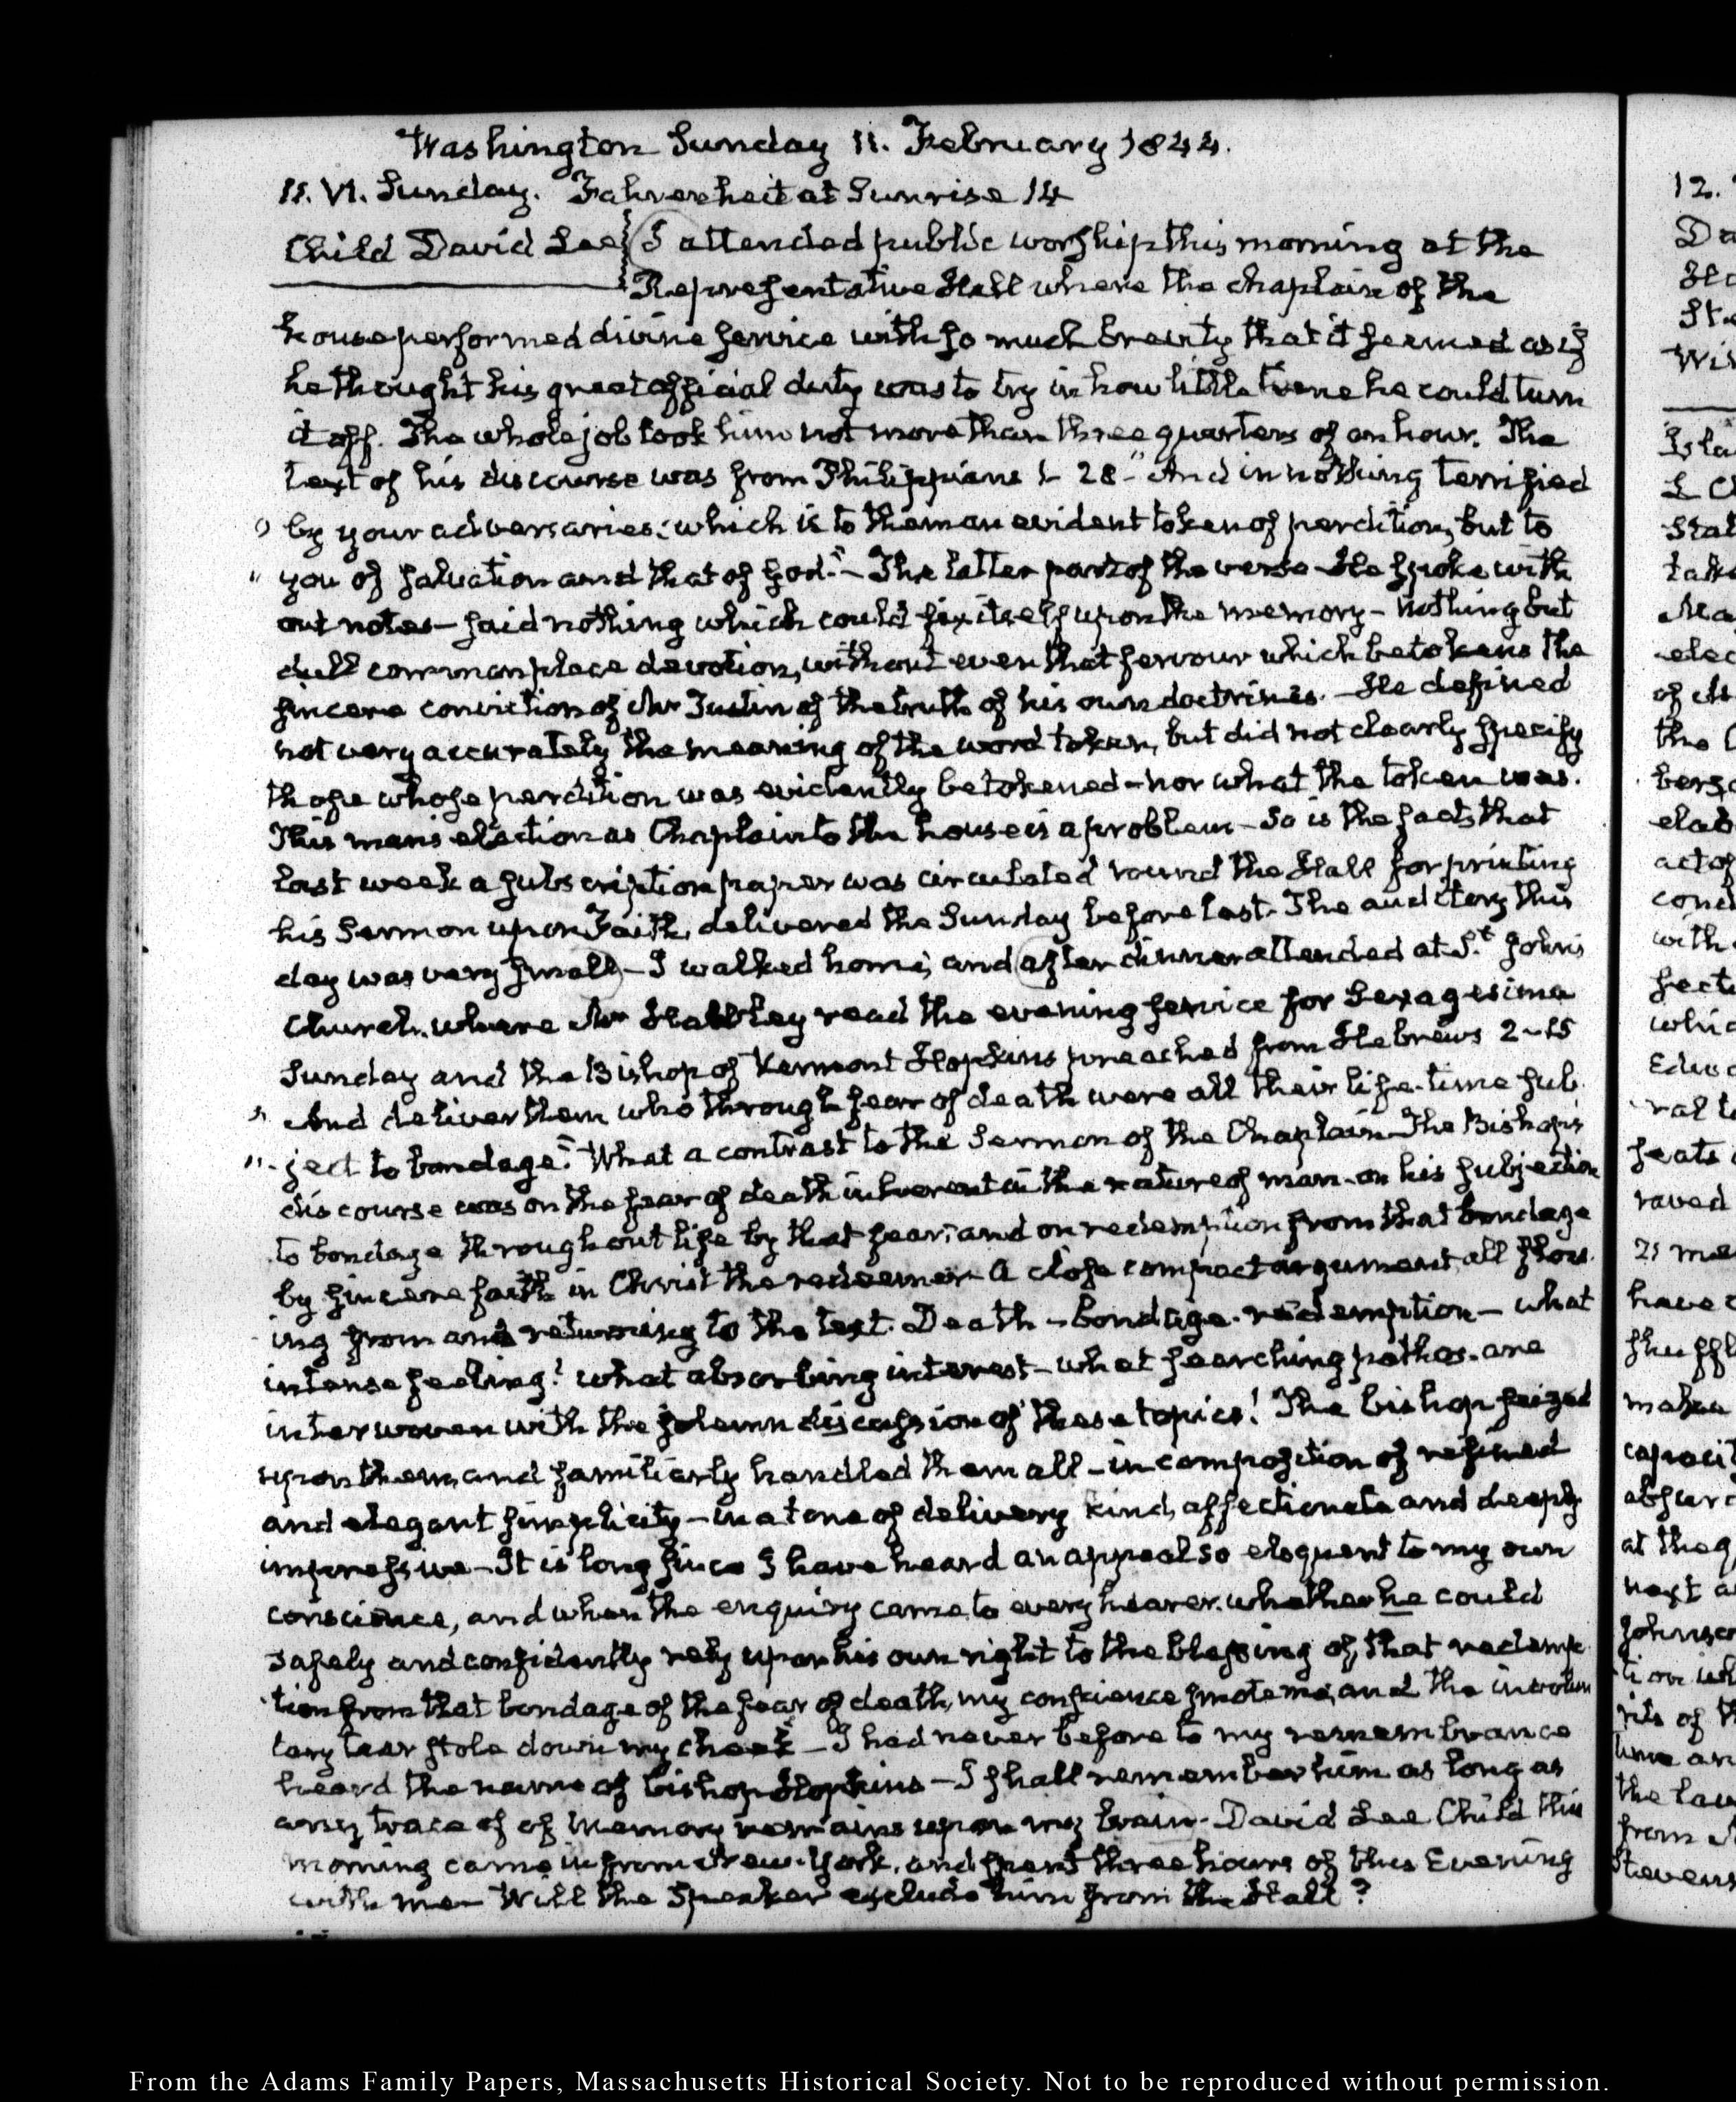 Washington Sunday 11. February 1844.
11. VI. Sunday. Fahrenheit at Sunrise 14
Child David Lee I attended public worship this morning at the
Representative Hall where the chaplain of the
house performed divine service with so much brevity that it seemed as if
he thought his great official duty was to try in how little time he could turn
it off. The whole job took him not more than three quarters of an hour. The
text of his discourse was from Philippians 1- 28- "And in nothing terrified
" by your adversaries: which is to them an evident token of perdition, but to
" you of salvation and that of God."- The latter part of the verse He spoke with
out notes- said nothing which could fix itself upon the memory- nothing but
dull commonplace devotion, without even that fervour which betokens the
sincere conviction of Mr Tustin of the truth of his own doctrines. He defined
not very accurately the meaning of the word token, but did not clearly specify
those whose perdition was evidently betokened- nor what the token was.
This man's election as Chaplain to the house is a problem- So is the fact, that
last week a subscription paper was circulated round the Hall for printing
his Sermon upon Faith, delivered the Sunday before last. The auditory this
day was very small- I walked home, and after dinner attended at St. John's
Church. where Mr Hawley read the evening service for Sexagesima
Sunday and the Bishop of Vermont Hopkins preached from Hebrews 2-15
" And deliver them who through fear of death were all their life-time sub
" ject to bondage." What a contrast to the Sermon of the Chaplain- The Bishop's
discourse was on the fear of death inherent in the nature of man- on his subjection
to bondage throughout life by that fear; and on redemption from that bondage
by sincere faith in Christ the redeemer- A close compact argument, all flow
ing from and returning to the text. Death- bondage- redemption- what
intense feeling! what absorbing interest- what searching pathos- are
interwoven with the solemn discussion of these topics! The bishop seized
upon them, and familiarly handled them all- in composition of refined
and elegant simplicity- in a tone of delivery kind, affectionate and deeply
impressive- It is long since I have heard an appeal so eloquent to my own
conscience, and when the enquiry came, to every hearer. whether he could
safely and confidently rely upon his own right to the blessing of that redemp
tion from that bondage of the fear of death, my conscience smote me, and the involun
tary tear stole down my cheek- I had never before to my remembrance
heard the name of bishop Hopkins- I shall remember him as long as
any trace of of Memory remains upon my brain- David Lee Child this
morning came in from New-York, and spent three hours of this Evening
with me- Will the Speaker exclude him from the Hall?
From the Adams Family Papers, Massachusetts Historical Society. Not to be reproduced without permission.